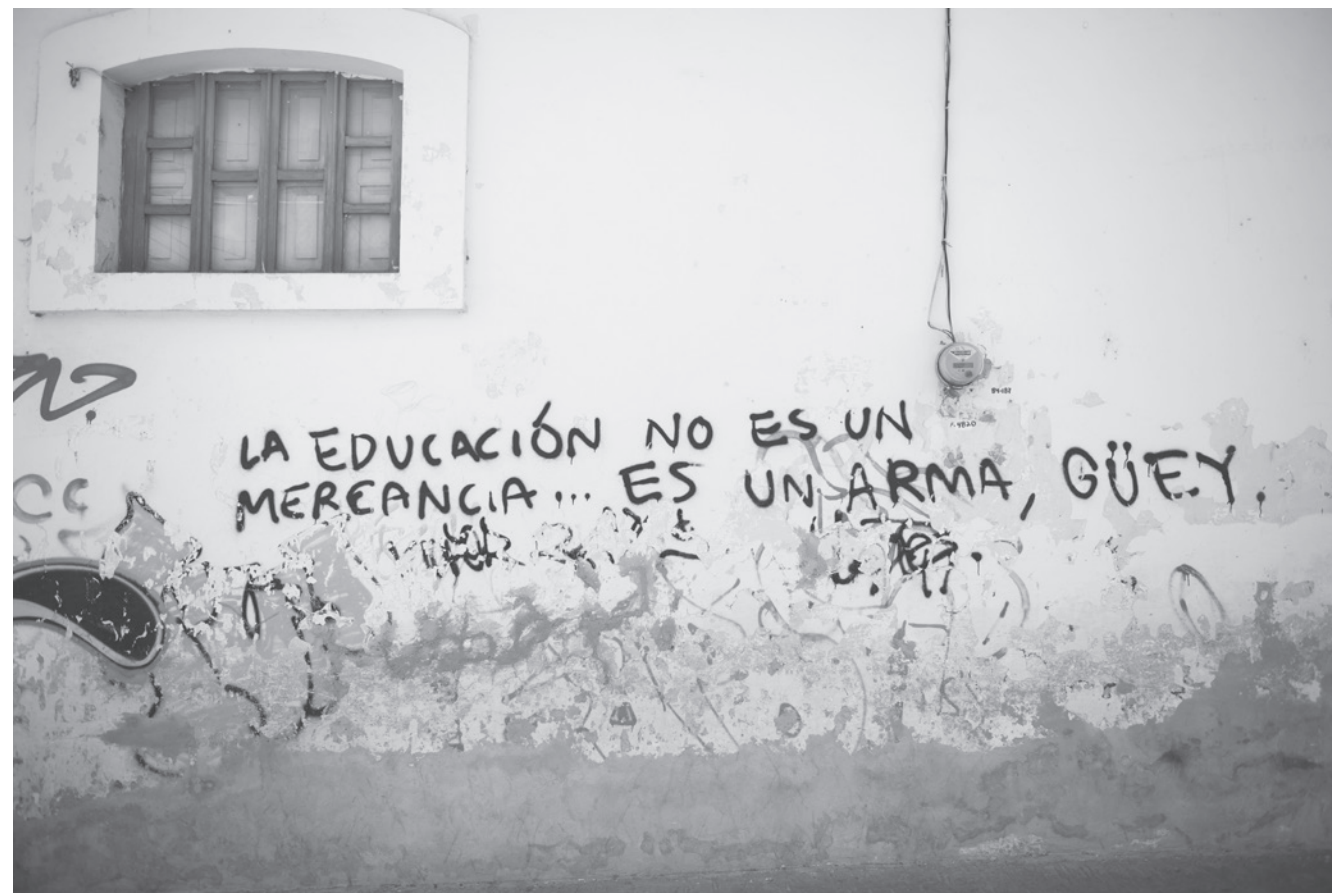 LA EDUCACIÓN NO ES UN
MERCANCIA... ES UN ARMA, GÜEY.